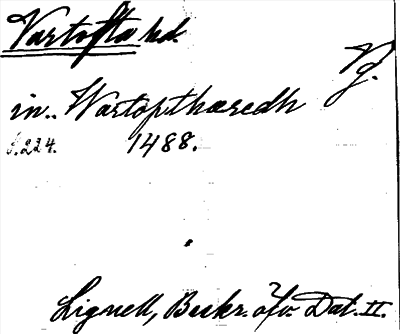 Vartofta hd.
Vg.
in.. Wartopthæredh
s. 224. 1488.
Lignell, Beskr. öfv. Dal. II.